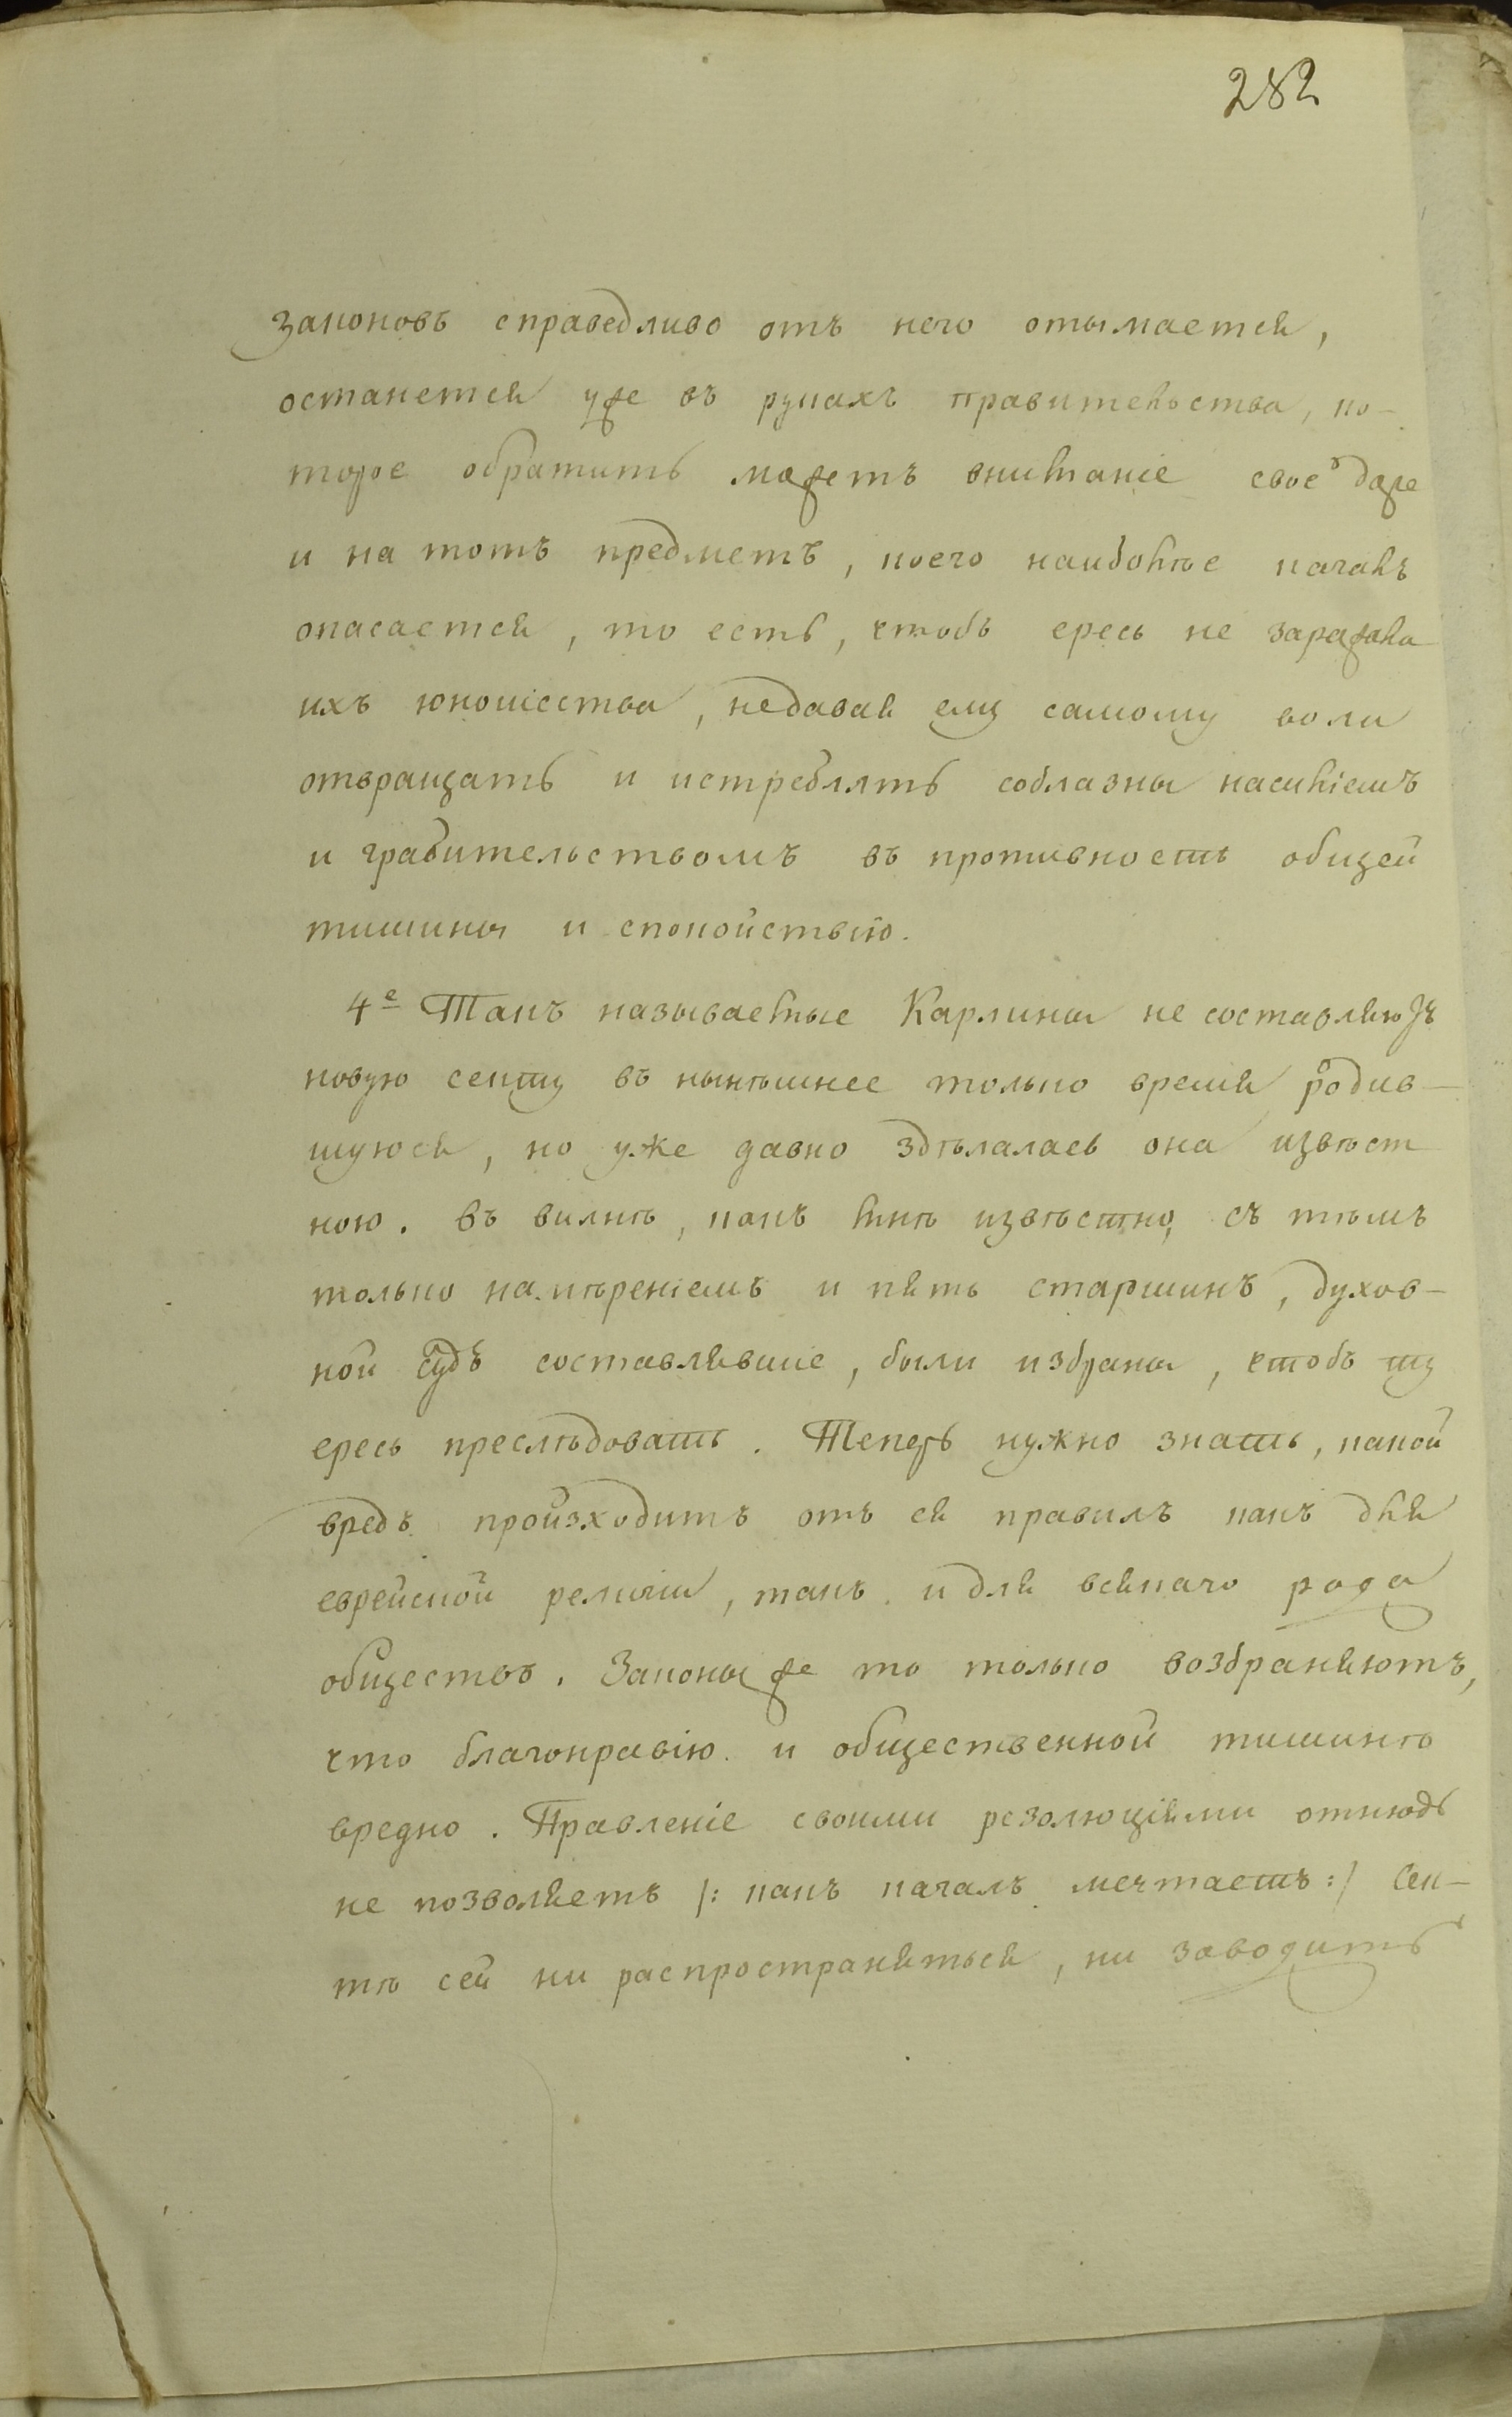 282
законовъ справедливо отъ него отымается,
останется уже въ рукахъ правительства, ко-
торое обратить можетъ вниманіе свое даже
и на тотъ предметъ, коего наиболѣе кагалъ
опасается, то есть, чтобъ ересь не заражала
ихъ юношества, недавая ему самому воли
отвращать и истреблять соблазны насиліемъ
и грабительствомъ въ противность общей
тишины и спокойствію.
4е Такъ называемые Карлины не составляютъ
новую секту въ нынѣшнее только время родив-
шуюся, но уже давно здѣлалась она извѣст
ною. въ вилнѣ, какъ мнѣ извѣстно, съ тѣмъ
только намѣреніемъ и пять старшинъ, духов-
ной судъ составлявшіе, были избраны, чтобъ ту
ересь преслѣдовать. Теперь нужно знать, какой
вредъ произходитъ отъ ея правилъ какъ для
еврейской религіи, такъ и для всякаго рода
обществъ. Законы же то только возбраняютъ,
что благонравію и общественной тишинѣ
вредно. Правленіе своими резолюціями отнюдь
не позволяетъ /: какъ кагалъ мечтаетъ :/ сек-
тѣ сей ни распространяться, ни заводить